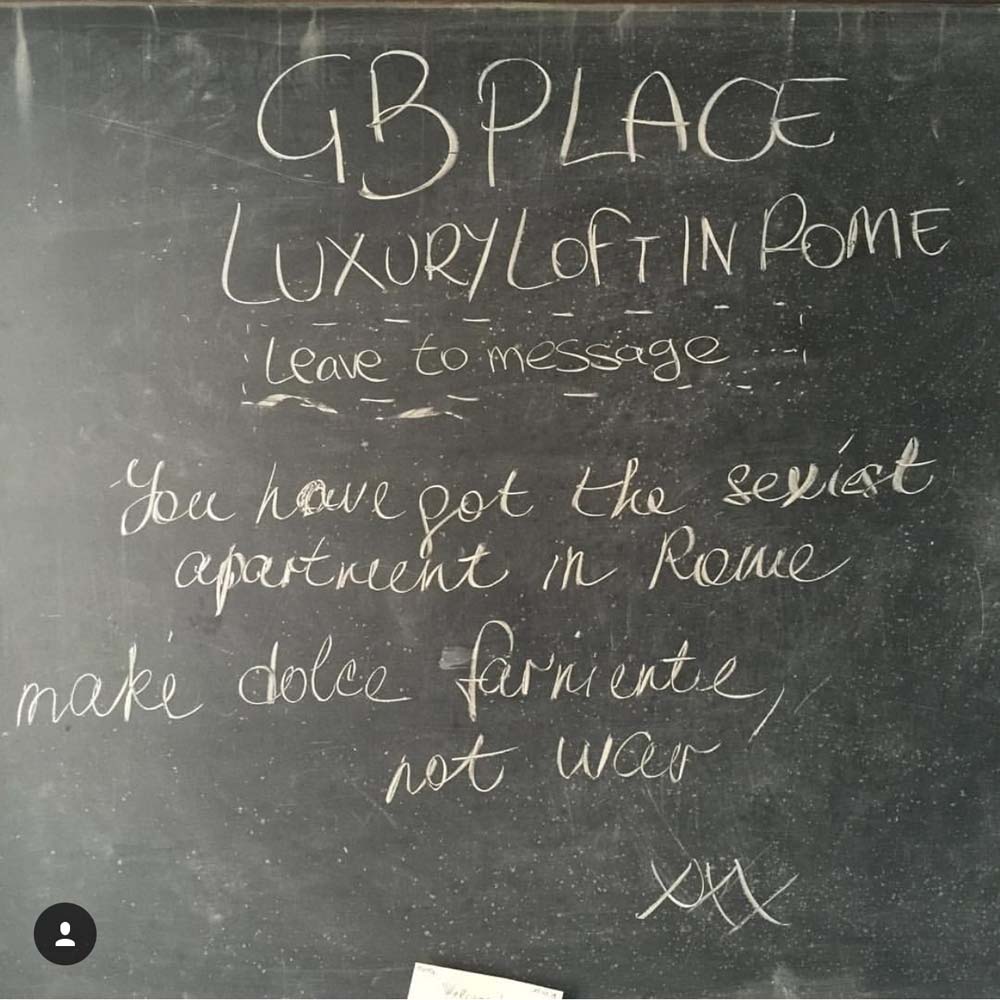 GB PLACE
LUXURY LOFT IN ROME
Leave to message
You have got the sexiest
apartment in Rome
make dolce farniente,
not war
xxx